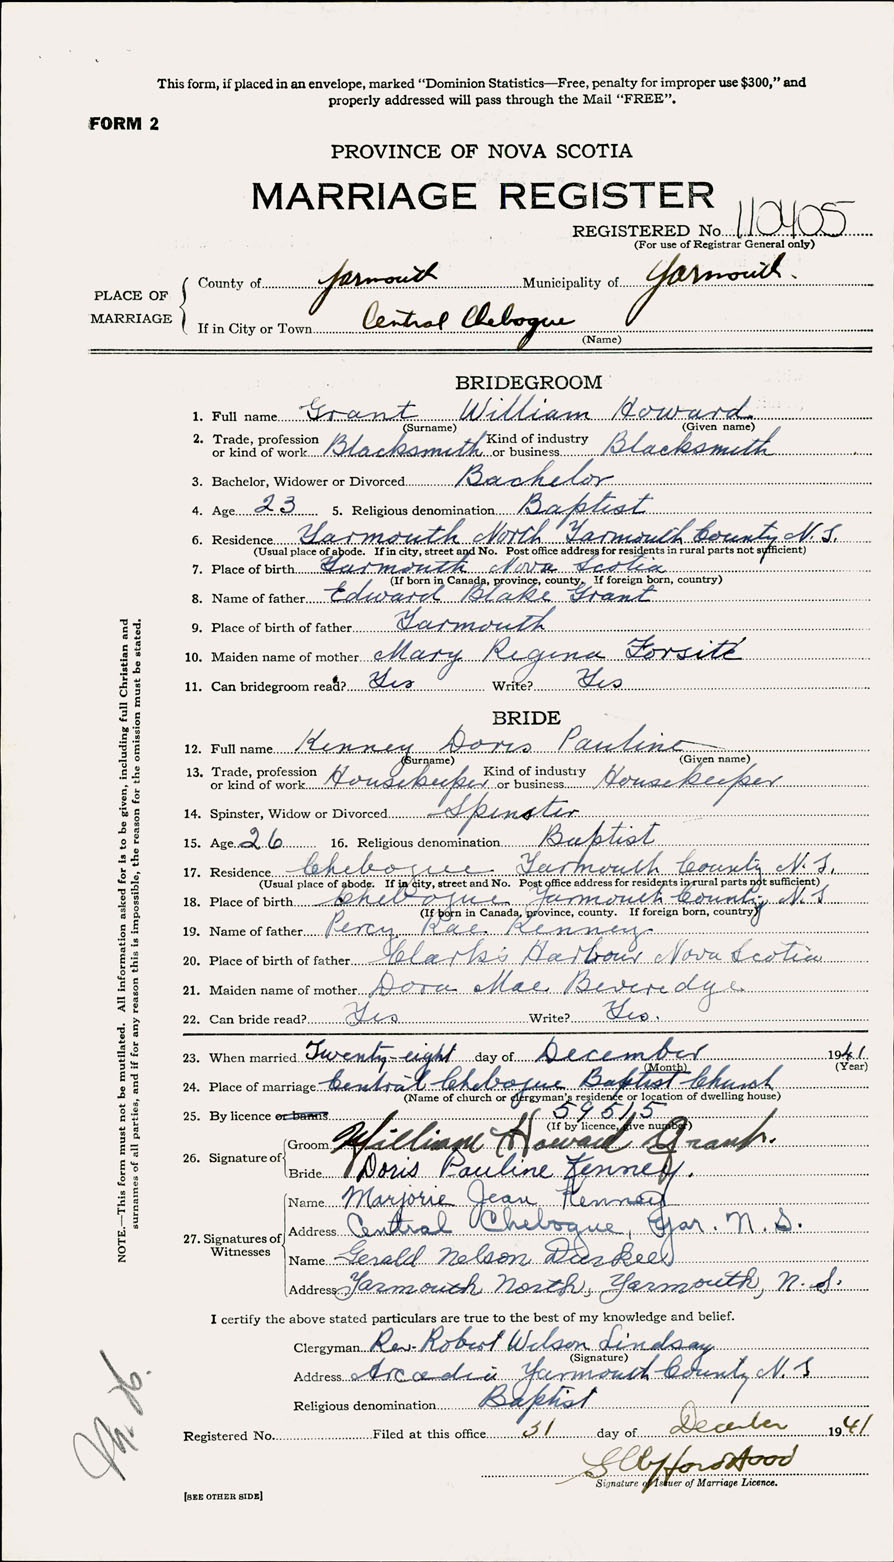 This form, if placed in an envelope, marked "Dominion Statistics—Free, penalty for improper use $300," and
properly addressed will pass through the Mail "FREE".
FORM 2
PROVINCE OF NOVA SCOTIA
MARRIAGE REGISTER
REGISTERED No. 110405
(For use of Registrar General only)
PLACE OF MARRIAGE
County of Yarmouth Municipality of Yarmouth.
If in City or Town Central Chebogue
(Name)
BRIDEGROOM
1. Full name Grant William Howard
(Surname) (Given name)
2. Trade, profession or kind of work Blacksmith Kind of industry or business Blacksmith
3. Bachelor, Widower or Divorced Bachelor
4. Age 23 5. Religious denomination Baptist
6. Residence Yarmouth North Yarmouth County N.S.
(Usual place of abode. If in city, street and No. Post office address for residents in rural parts not sufficient)
7. Place of birth Yarmouth Nova Scotia
(If born in Canada, province, county. If foreign born, country)
8. Name of father Edward Blake Grant
9. Place of birth of father Yarmouth
10. Maiden name of mother Mary Regina Forsite
11. Can bridegroom read? Yes Write? Yes
BRIDE
12. Full name Kenney Doris Pauline
(Surname) (Given name)
13. Trade, profession or kind of work Housekeeper Kind of industry or business Housekeeper
14. Spinster, Widow or Divorced Spinster
15. Age 26 16. Religious denomination Baptist
17. Residence Chebogue Yarmouth County N.S.
(Usual place of abode. If in city, street and No. Post office address for residents in rural parts not sufficient)
18. Place of birth Chebogue Yarmouth County N.S
(If born in Canada, province, county. If foreign born, country)
19. Name of father Percy Rae Kenney
20. Place of birth of father Clark's Harbour Nova Scotia
21. Maiden name of mother Dora Mae Beveredge
22. Can bride read? Yes Write? Yes.
23. When married Twenty-eight day of December 1941
(Month) (Year)
24. Place of marriage Central Chebogue Baptist Church
(Name of church or clergyman's residence or location of dwelling house)
25. By licence or banns 59515
(If by licence, give number)
26. Signature of
Groom William Howard Grant.
Bride Doris Pauline Kenney.
27. Signatures of Witnesses
Name Marjorie Jean Kenney
Address Central Chebogue, Yar. N.S.
Name Gerald Nelson Durkee
Address Yarmouth North, Yarmouth, N.S.
I certify the above stated particulars are true to the best of my knowledge and belief.
Clergyman Rev. Robert Wilson Lindsay
(Signature)
Address Arcadia Yarmouth County N.S
Religious denomination Baptist
Registered No. Filed at this office 31 day of December 1941
Signature of Issuer of Marriage Licence.
[SEE OTHER SIDE]
NOTE.—This form must not be mutilated. All information asked for is to be given, including full Christian and
surnames of all parties, and if for any reason this is impossible, the reason for the omission must be stated.